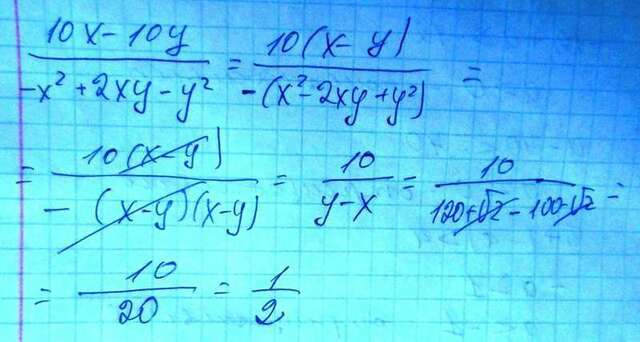 (10x - 10y)/(-x² + 2xy - y²) = 10(x - y)/(-(x² - 2xy + y²)) =
= 10(x - y)/(-(x - y)(x - y)) = 10/(y - x) = 10/(120 + √2 - 100 - √2) =
= 10/20 = 1/2